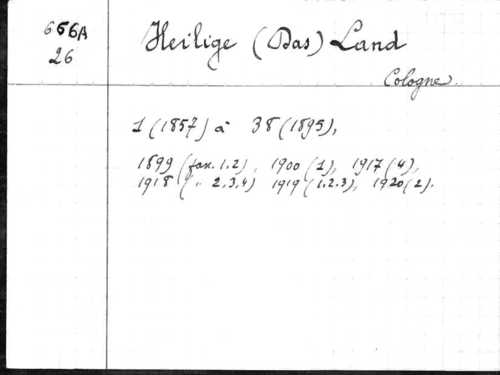 656A
26
Heilige (Das) Land
Cologne.
1 (1857) à 38 (1895),
1899 (fax. 1.2), 1900 (1), 1917 (4),
1918 ( " 2.3.4) 1919 (1.2.3), 1920 (2).